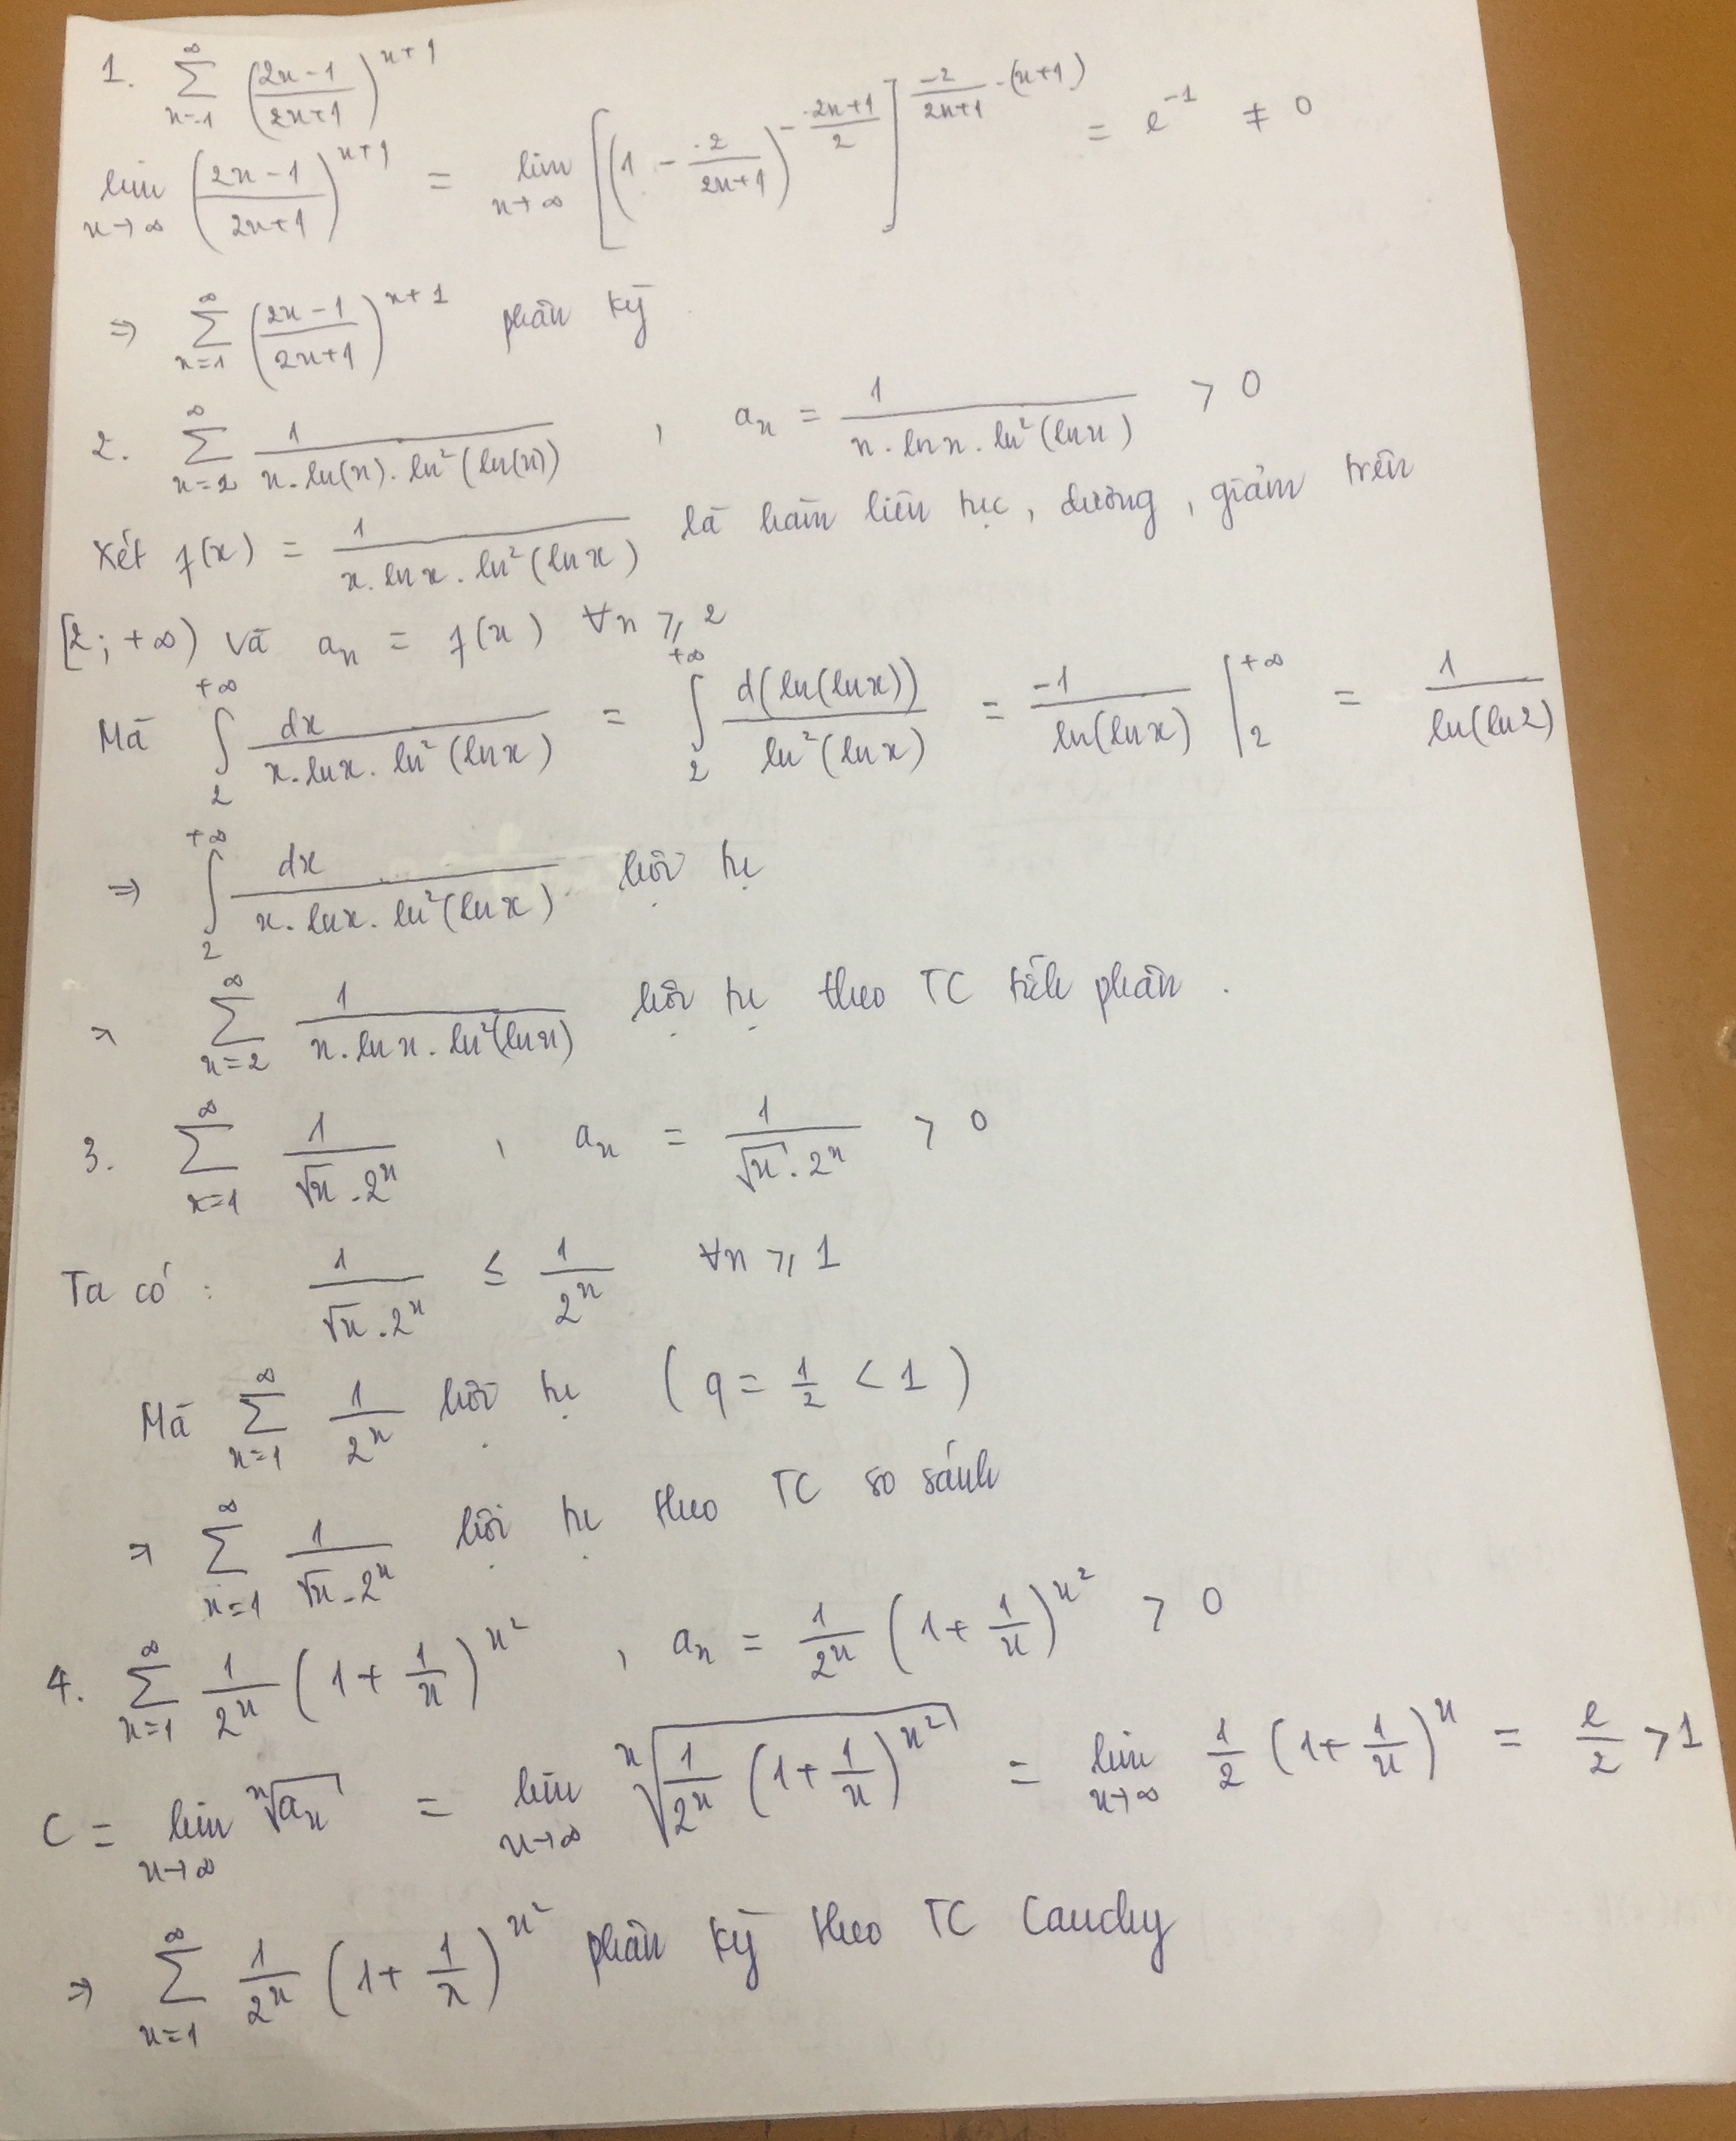 1. $\sum_{n=1}^{\infty} \left(\frac{2n-1}{2n+1}\right)^{n+1}$
$\lim_{n\to\infty} \left(\frac{2n-1}{2n+1}\right)^{n+1} = \lim_{n\to\infty} \left[\left(1 - \frac{2}{2n+1}\right)^{-\frac{2n+1}{2}}\right]^{\frac{-2}{2n+1} \cdot (n+1)} = e^{-1} \neq 0$
$\Rightarrow \sum_{n=1}^{\infty} \left(\frac{2n-1}{2n+1}\right)^{n+1}$ phân kỳ.
2. $\sum_{n=2}^{\infty} \frac{1}{n.\ln(n).\ln^2(\ln(n))}$ , $a_n = \frac{1}{n.\ln n.\ln^2(\ln n)} > 0$
Xét $f(x) = \frac{1}{x.\ln x.\ln^2(\ln x)}$ là hàm liên tục, dương, giảm trên
$[2; +\infty)$ và $a_n = f(n)$ $\forall n \geqslant 2$
Mà $\int_{2}^{+\infty} \frac{dx}{x.\ln x.\ln^2(\ln x)} = \int_{2}^{+\infty} \frac{d(\ln(\ln x))}{\ln^2(\ln x)} = \frac{-1}{\ln(\ln x)} \Big|_{2}^{+\infty} = \frac{1}{\ln(\ln 2)}$
$\Rightarrow \int_{2}^{+\infty} \frac{dx}{x.\ln x.\ln^2(\ln x)}$ hội tụ
$\Rightarrow \sum_{n=2}^{\infty} \frac{1}{n.\ln n.\ln^2(\ln n)}$ hội tụ theo TC tích phân.
3. $\sum_{n=1}^{\infty} \frac{1}{\sqrt{n}.2^n}$ , $a_n = \frac{1}{\sqrt{n}.2^n} > 0$
Ta có: $\frac{1}{\sqrt{n}.2^n} \leq \frac{1}{2^n}$ $\forall n \geqslant 1$
Mà $\sum_{n=1}^{\infty} \frac{1}{2^n}$ hội tụ $(q = \frac{1}{2} < 1)$
$\Rightarrow \sum_{n=1}^{\infty} \frac{1}{\sqrt{n}.2^n}$ hội tụ theo TC so sánh
4. $\sum_{n=1}^{\infty} \frac{1}{2^n}\left(1+\frac{1}{n}\right)^{n^2}$ , $a_n = \frac{1}{2^n}\left(1+\frac{1}{n}\right)^{n^2} > 0$
$C = \lim_{n\to\infty} \sqrt[n]{a_n} = \lim_{n\to\infty} \sqrt[n]{\frac{1}{2^n}\left(1+\frac{1}{n}\right)^{n^2}} = \lim_{n\to\infty} \frac{1}{2}\left(1+\frac{1}{n}\right)^n = \frac{e}{2} > 1$
$\Rightarrow \sum_{n=1}^{\infty} \frac{1}{2^n}\left(1+\frac{1}{n}\right)^{n^2}$ phân kỳ theo TC Cauchy